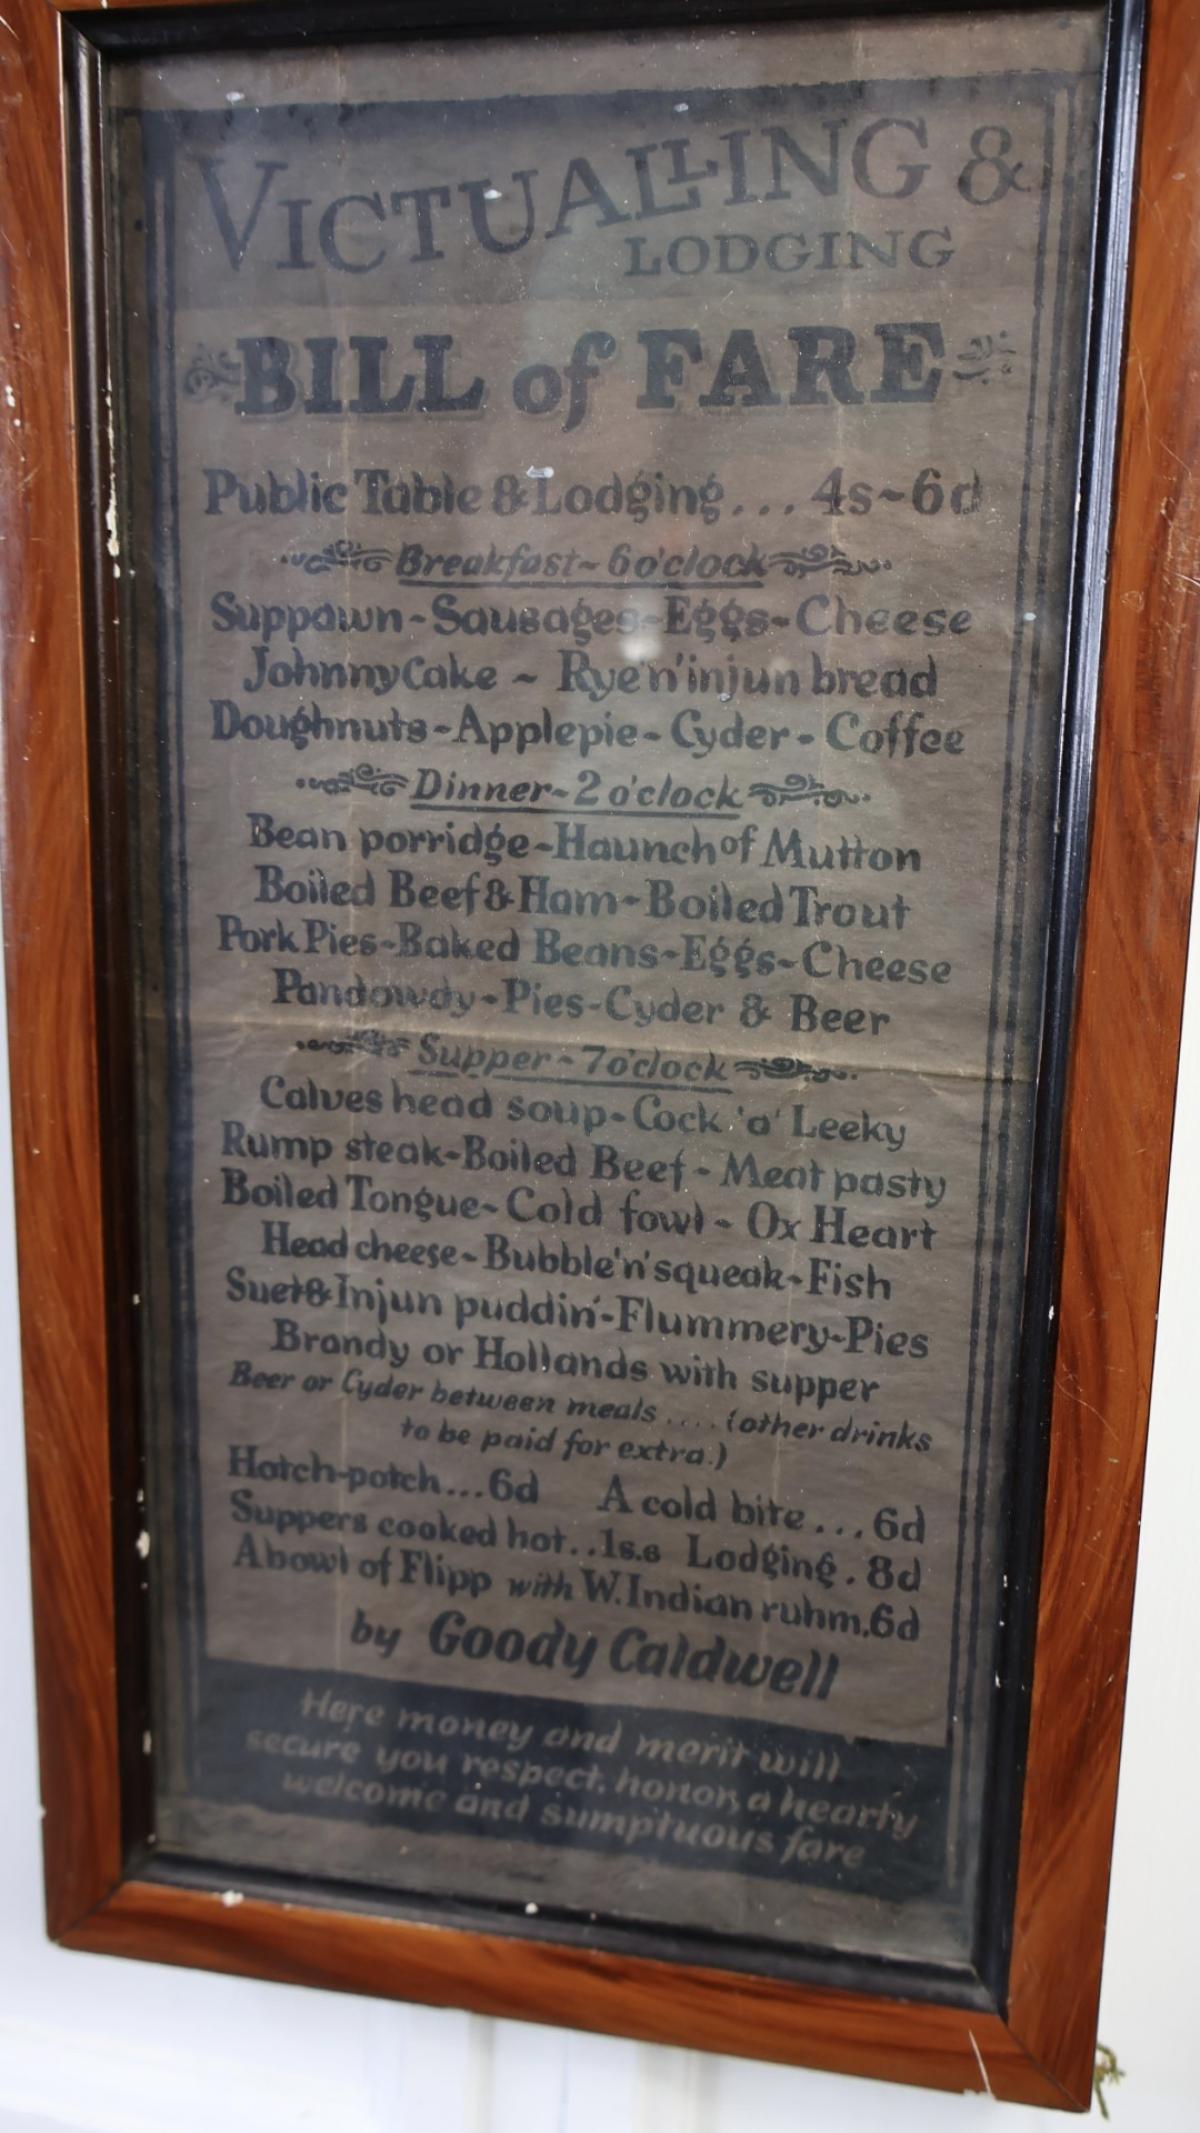 VICTUALLING &
LODGING
BILL of FARE
Public Table & Lodging... 4s~6d
Breakfast~6o'clock
Suppawn~Sausages~Eggs~Cheese
Johnny Cake ~ Rye'n'injun bread
Doughnuts~Applepie~Cyder~Coffee
Dinner~2 o'clock
Bean porridge~Haunch of Mutton
Boiled Beef & Ham~Boiled Trout
Pork Pies~Baked Beans~Eggs~Cheese
Pandowdy~Pies~Cyder & Beer
Supper~7o'clock
Calves head soup~Cock 'a' Leeky
Rump steak~Boiled Beef~Meat pasty
Boiled Tongue~Cold fowl~Ox Heart
Head cheese~Bubble'n'squeak~Fish
Suet & Injun puddin'~Flummery~Pies
Brandy or Hollands with supper
Beer or Cyder between meals .... (other drinks
to be paid for extra.)
Hotch-potch...6d A cold bite...6d
Suppers cooked hot..1s.6 Lodging.8d
A bowl of Flipp with W.Indian ruhm.6d
by Goody Caldwell
Here money and merit will
secure you respect, honor, a hearty
welcome and sumptuous fare